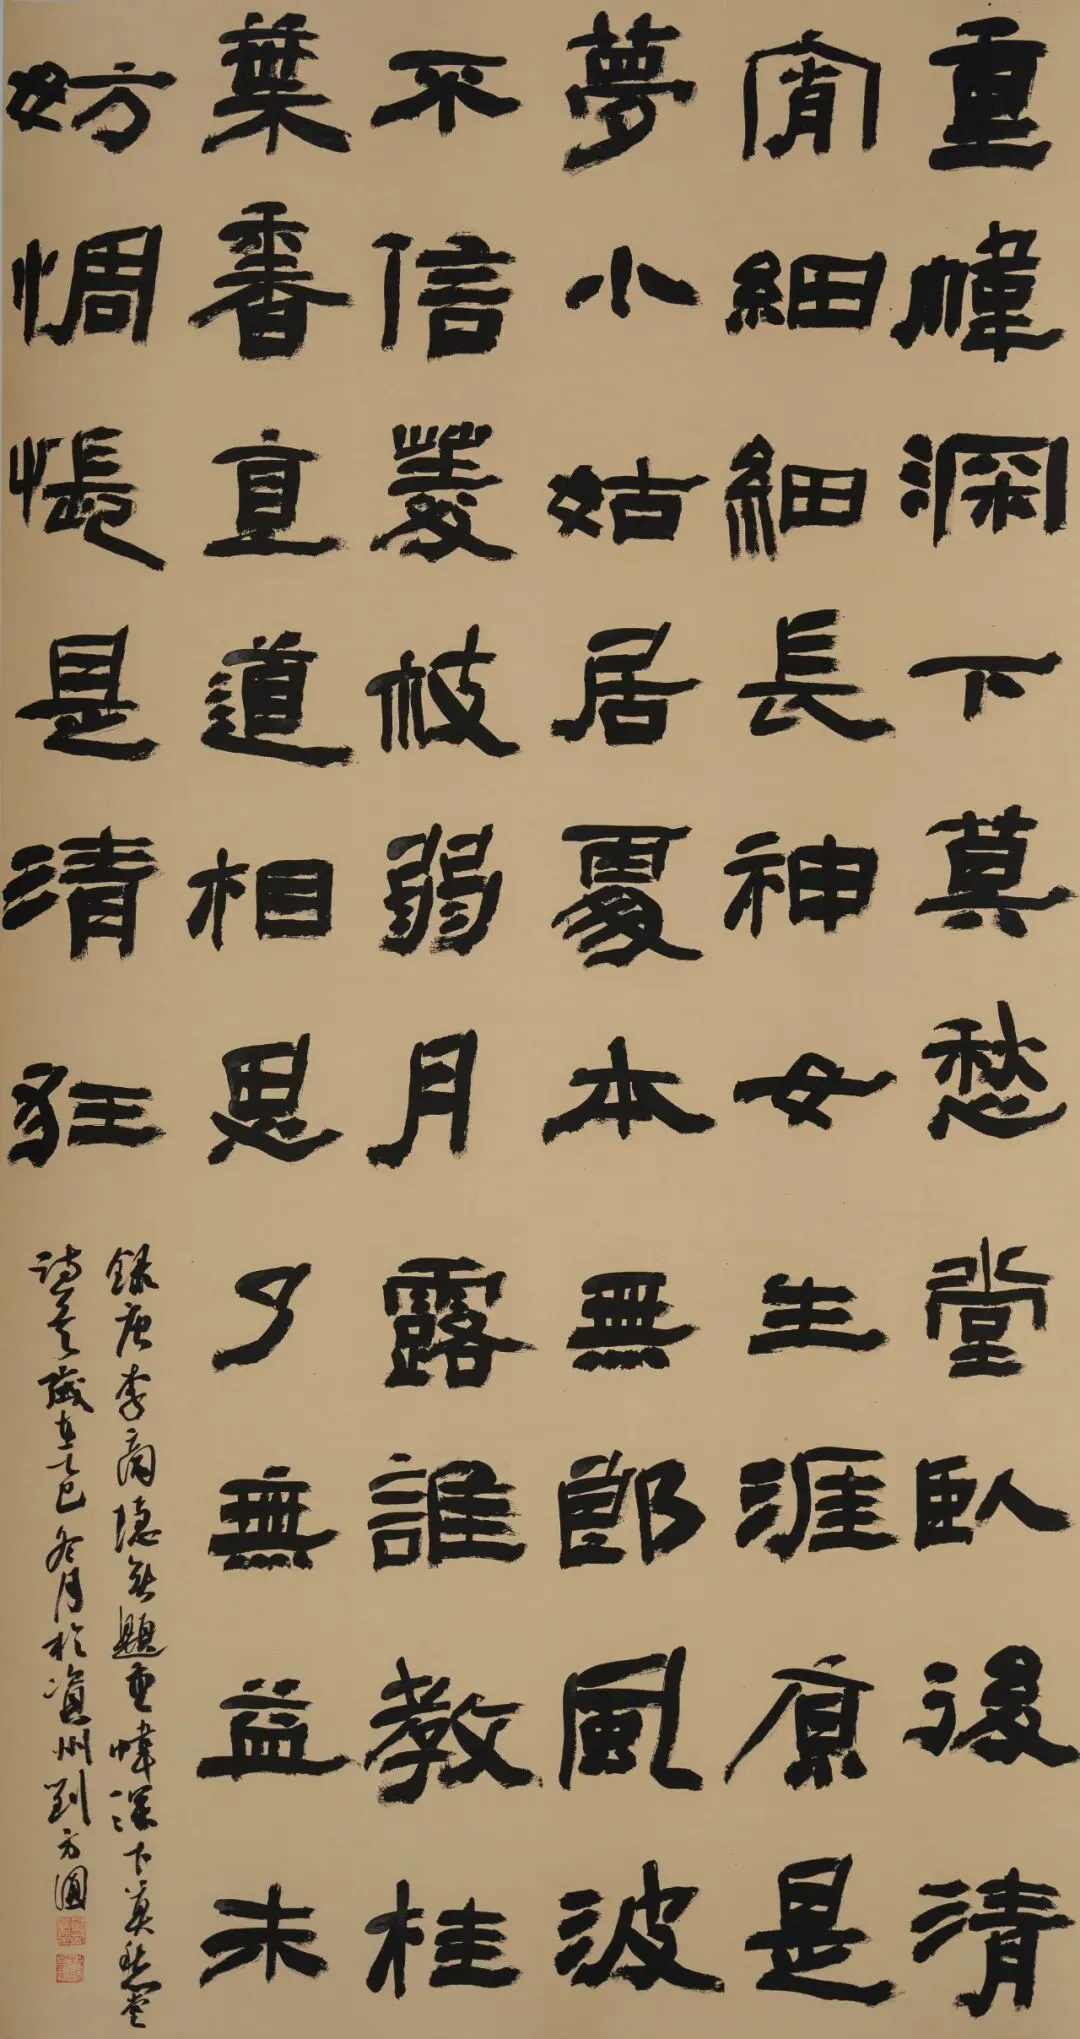 重幃深下莫愁堂臥後清
宵細細長神女生涯原是
夢小姑居處本無郎風波
不信菱枝弱月露誰教桂
葉香直道相思了無益未
妨惆悵是清狂
錄唐李商隱無題重幃深下莫愁堂
詩歲在乙巳冬月於資州劉方圓